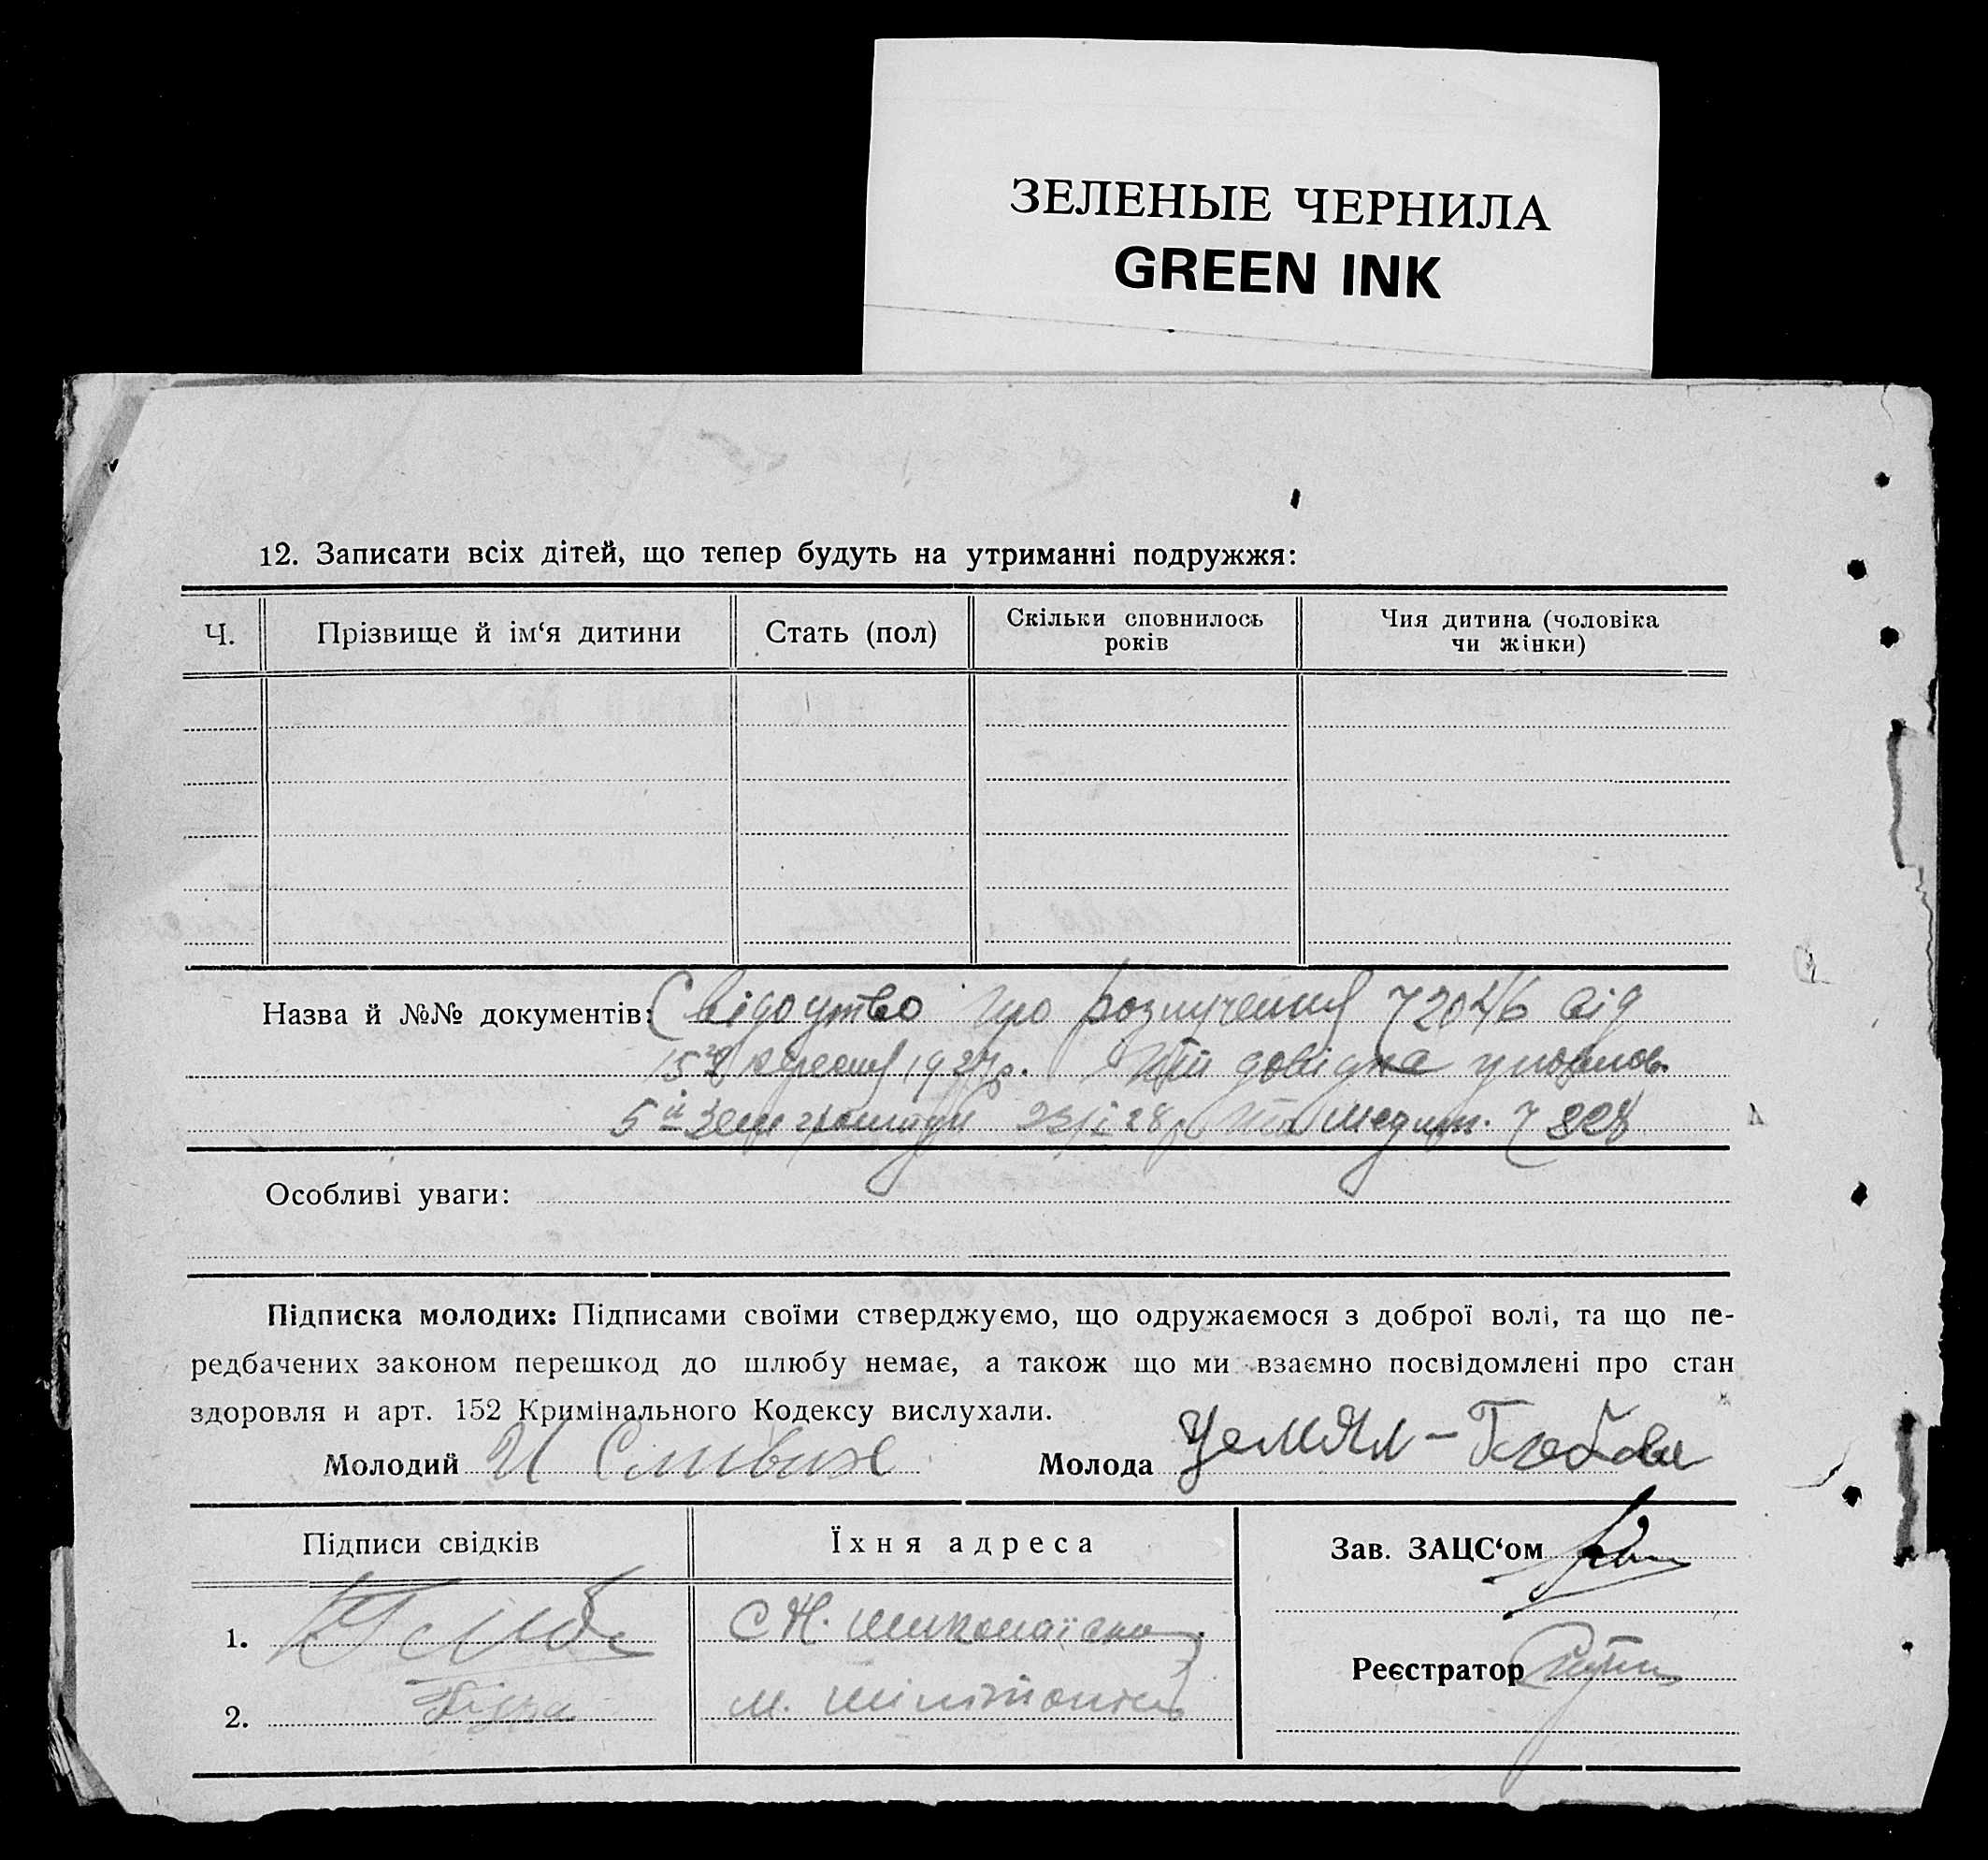 ЗЕЛЕНЫЕ ЧЕРНИЛА
GREEN INK
12. Записати всіх дітей, що тепер будуть на утриманні подружжя:
Ч.
Прізвище й ім‘я дитини
Стать (пол)
Скільки сповнилось
років
Чия дитина (чоловіка
чи жінки)
Назва й №№ документів: Свідоцтво про розлучення 72046 від
15го вересня 1927р. довідка
5й Зем громади 28р
Особливі уваги:
Підписка молодих: Підписами своїми стверджуємо, що одружаємося з доброї волі, та що пе-
редбачених законом перешкод до шлюбу немає, а також що ми взаємно посвідомлені про стан
здоровля и арт. 152 Кримінального Кодексу вислухали.
Молодий И
Молода
Підписи свідків
Їхня адреса
Зав. ЗАЦС‘ом
1.
С Н. Миколаївка
Реєстратор
2.
м.